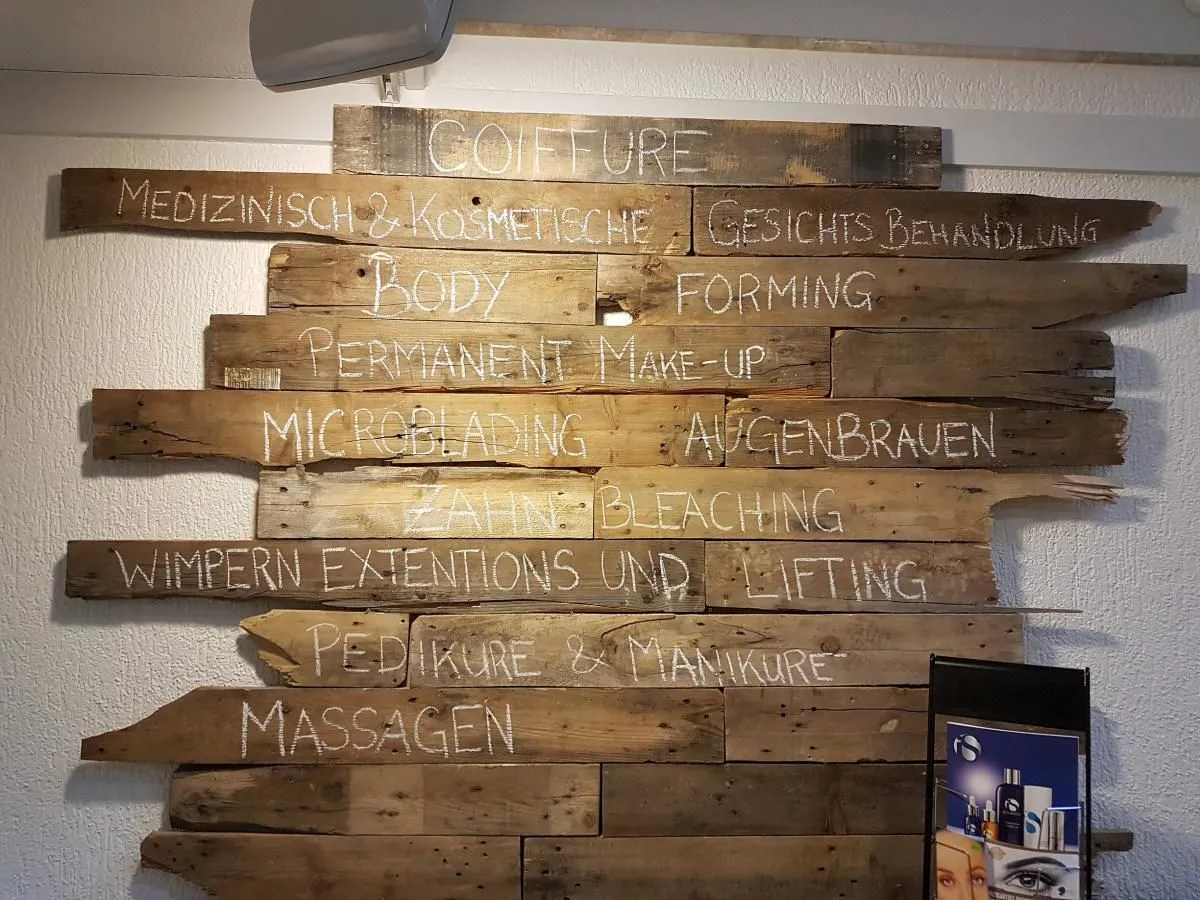 COIFFURE
MEDIZINISCH & KOSMETISCHE GESICHTS BEHANDLUNG
BODY FORMING
PERMANENT MAKE-UP
MICROBLADING AUGENBRAUEN
ZAHN BLEACHING
WIMPERN EXTENTIONS UND LIFTING
PEDIKURE & MANIKURE
MASSAGEN